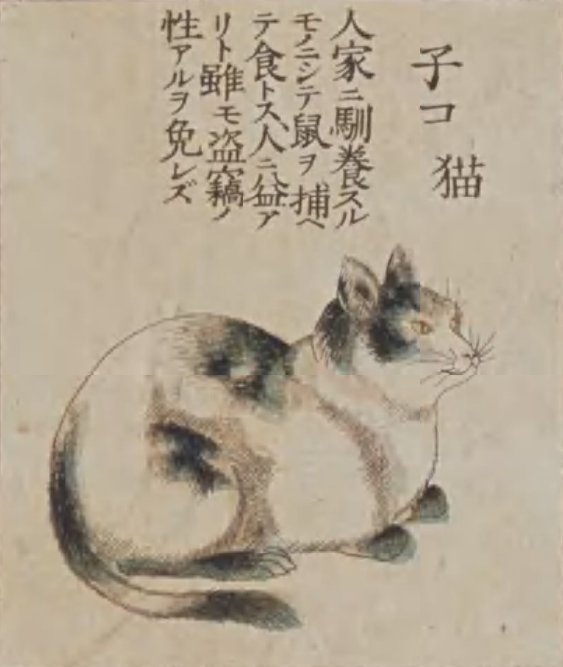 子コ 猫
人家ニ馴養スル
モノニシテ鼠ヲ捕ヘ
テ食トス、人ニ益ア
リト雖モ盗竊ノ
性アルヲ免レズ